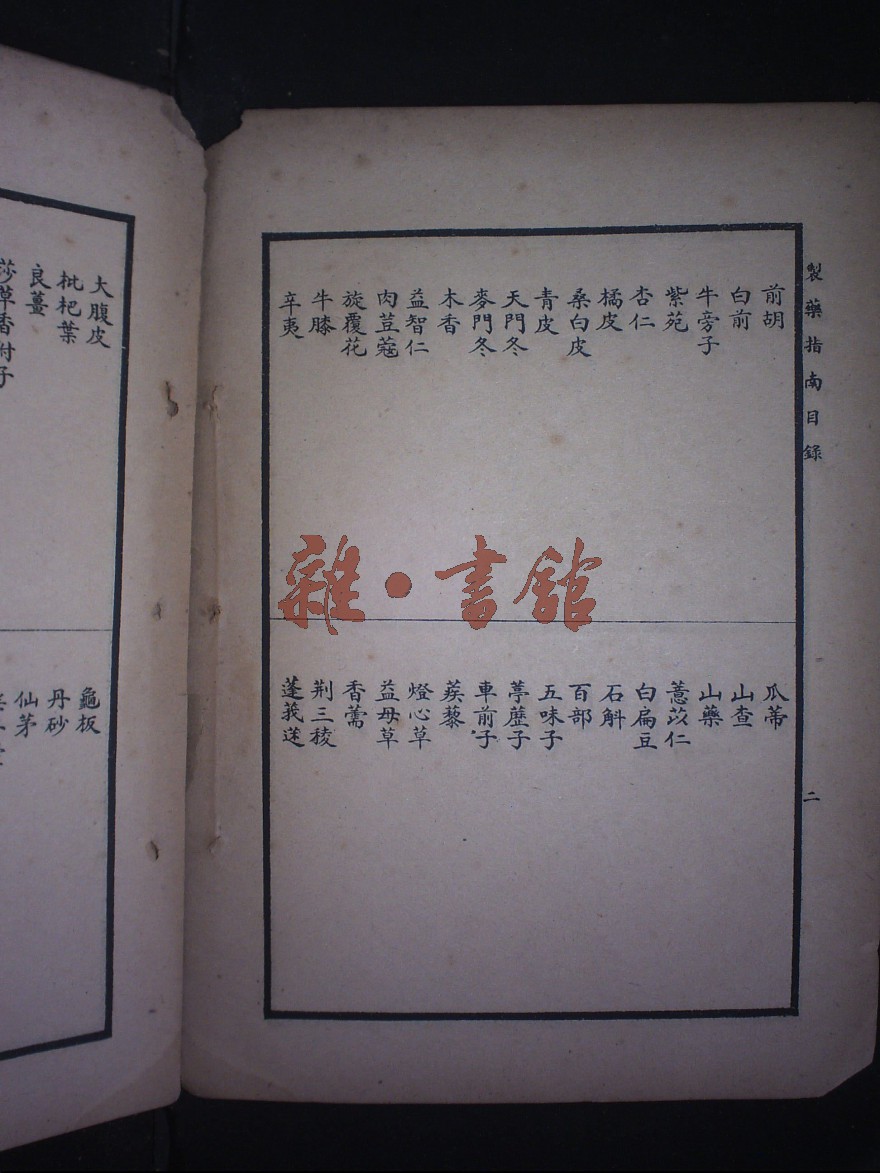 製藥指南目錄
二
前胡
白前
牛旁子
紫苑
杏仁
橘皮
桑白皮
青皮
天門冬
麥門冬
木香
益智仁
肉荳蔻
旋覆花
牛膝
辛夷
瓜蒂
山查
山藥
薏苡仁
白扁豆
石斛
百部
五味子
葶藶子
車前子
蒺藜
燈心草
益母草
香薷
荆三稜
蓬莪蒁
雜·書館
大腹皮
枇杷葉
良薑
莎草香附子
龜板
丹砂
仙茅